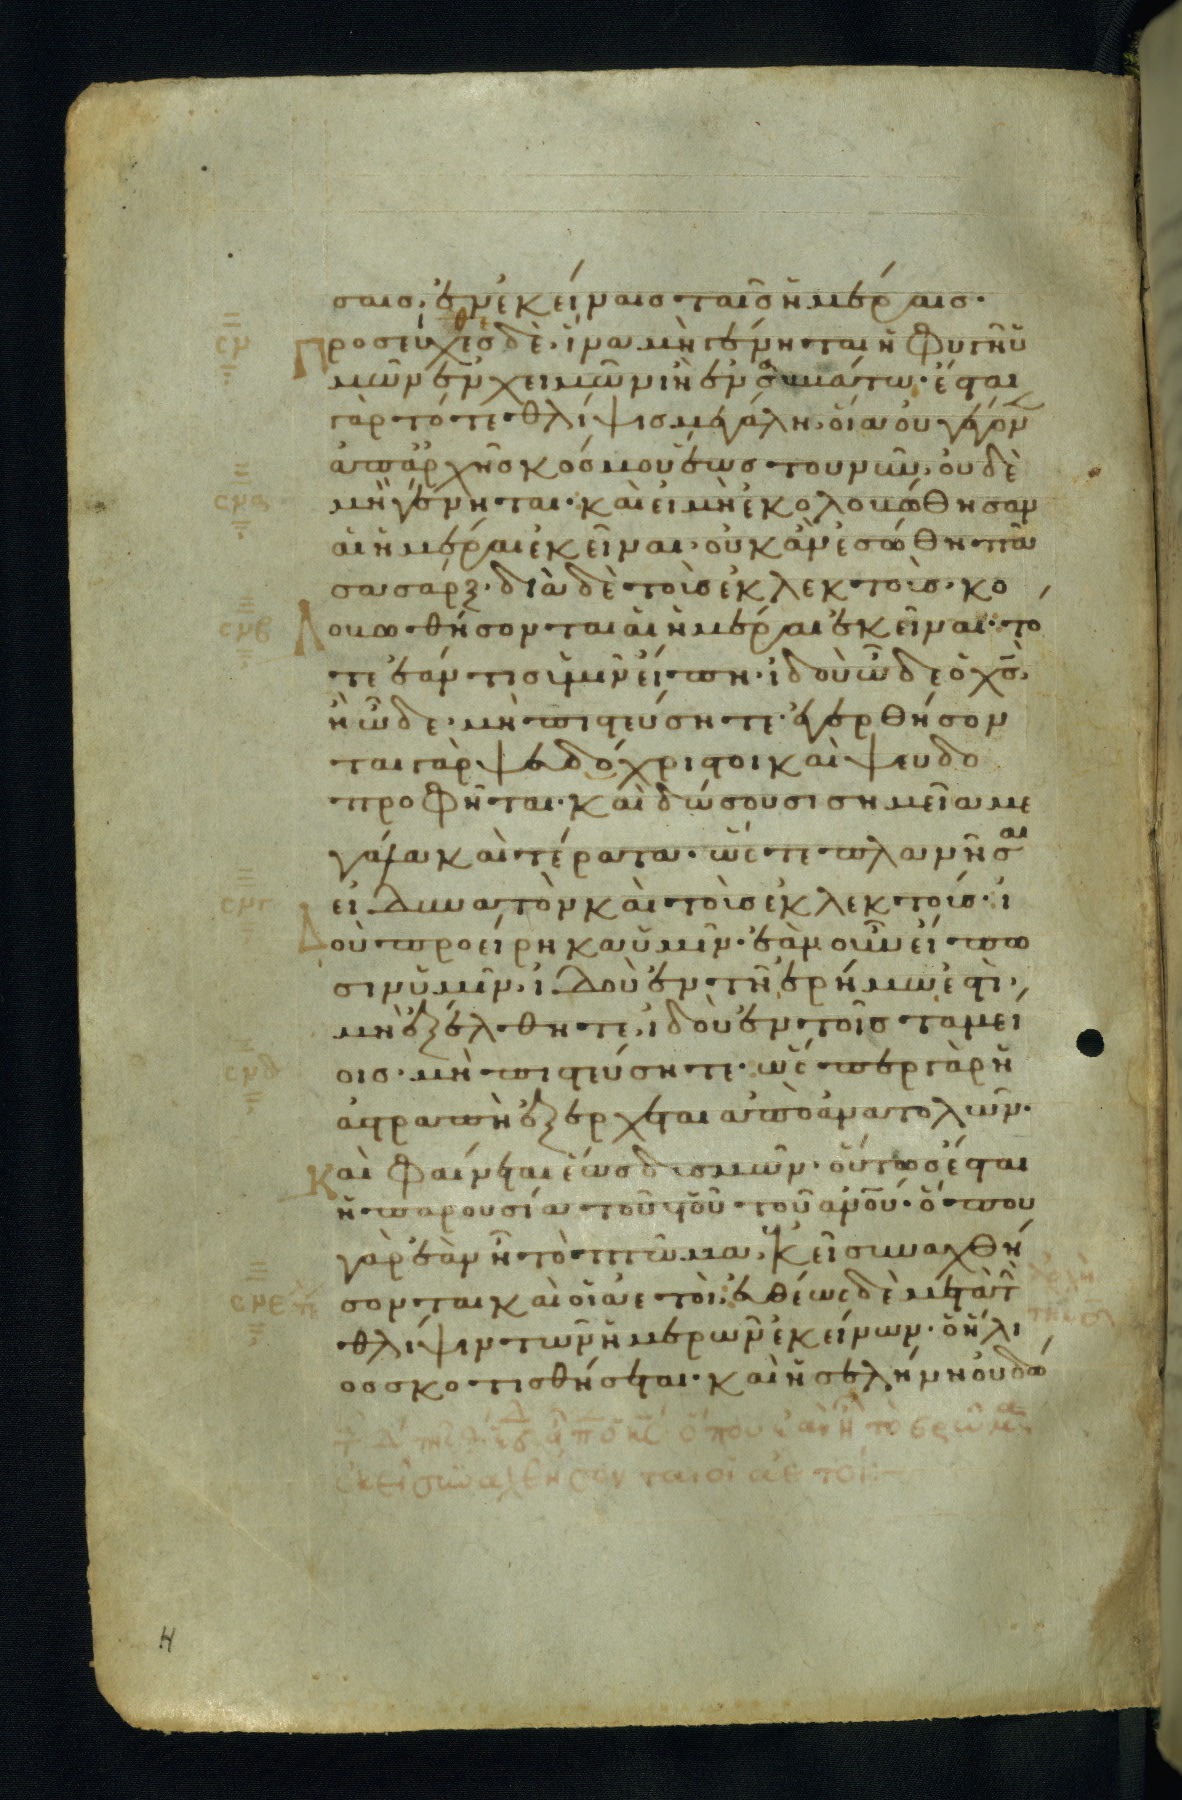 σαισ, ἐν ἐκείναισ ταῖσ ἡμέραισ.
Προσεύχεσθε δὲ, ἵνα μὴ γένηται ἡ φυγὴ ὑ
μῶν ἐν χειμῶνι ἢ ἐν σαββάτω· ἔσται
γὰρ τότε θλίψισ μεγάλη, οἵα οὐ γέγονεν
ἀπαρχῆσ κόσμου ἕωσ του νῦν, οὐδὲ
μὴ γένηται· καὶ εἰ μὴ ἐκολοβώθησαν
αἱ ἡμέραι ἐκεῖναι, οὐκ ἂν ἐσώθη πᾶ
σα σάρξ· διὰ δὲ τοὺσ ἐκλεκτοὺσ· κο
λοβωθήσονται αἱ ἡμέραι ἐκεῖναι· το
τε ἐάν τισ ὑμῖν εἴπη· ἰδοὺ ὧδε ὁ χσ,
ἢ ὧδε· μὴ πιστεύσητε· ἐγερθήσον
ται γὰρ ψευδόχριστοι καὶ ψευδο
προφῆται· καὶ δώσουσι σημεῖα με
γάλα καὶ τέρατα· ὥστε πλανῆσαι
εἰ δυνατὸν καὶ τοὺσ ἐκλεκτούσ· ἰ
Δοὺ προείρηκα ὑμῖν· ἐὰν οὖν εἴπω
σιν ὑμῖν, ἰδοὺ ἐν τῆ ἐρήμω ἐστὶ,
μὴ ἐξέλθητε, ἰδοὺ ἐν τοῖσ ταμεί
οισ· μὴ πιστεύσητε· ὥσπερ γὰρ ἡ
ἀστραπὴ ἐξέρχεται ἀπὸ ἀνατολῶν·
Καὶ φαίνεται ἕωσ δυσμῶν· οὕτωσ ἔσται
ἡ παρουσία τοῦ υἱοῦ τοῦ ἀνου· ὅπου
γὰρ ἐὰν ἦ τὸ πτῶμα, ἐκεῖ συναχθή
σονται καὶ οἱ ἀετοὶ, εὐθέωσ δὲ μετὰ τ
θλίψιν τῶν ἡμερῶν ἐκείνων· ὁ ἥλι
οσ σκοτισθήσεται· καὶ ἡ σελήνη οὐ δώ
ὅπου ἐὰν ἦ τὸ πτῶμα
ἐκεῖ συναχθήσονται οἱ ἀετοί
σμ
σμα
σμβ
σμγ
σμδ
σμε